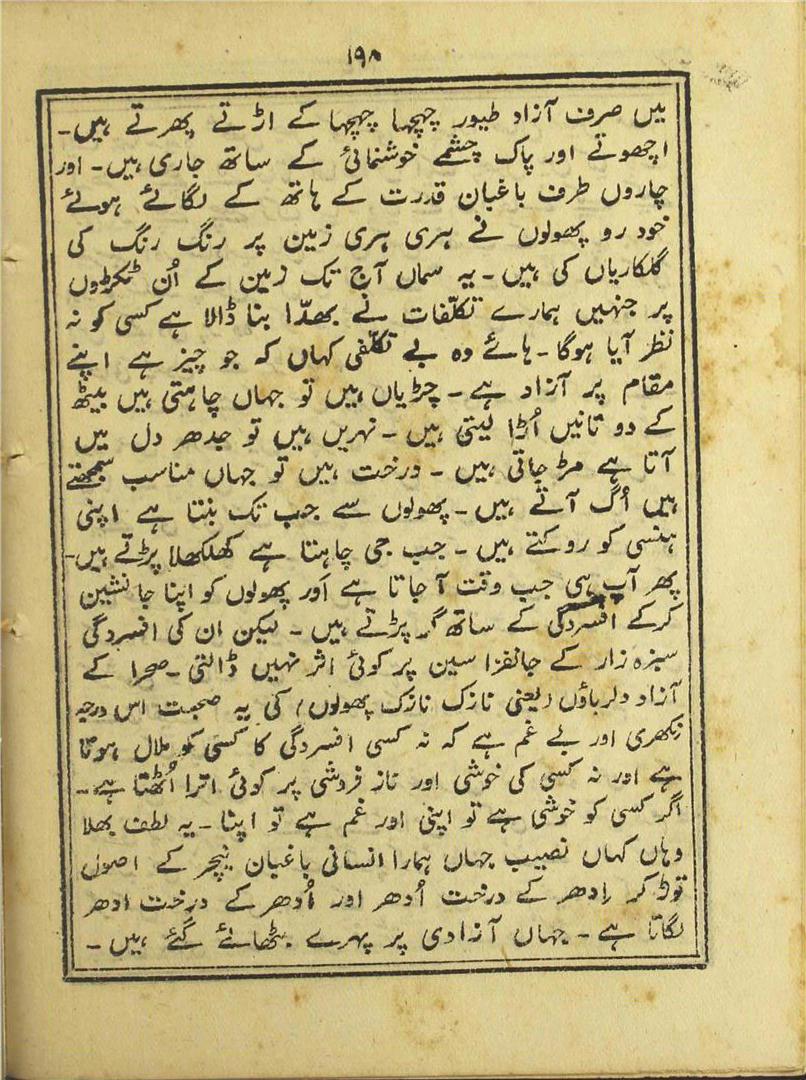 ۱۹۸
میں صرف آزاد طیور چہچہا چہچہا کے اڑتے پھرتے ہیں۔
اچھوتے اور پاک چشمے خوشنمائی کے ساتھ جاری ہیں۔ اور
چاروں طرف باغبان قدرت کے ہاتھ کے لگائے ہوئے
خود رو پھولوں نے ہری ہری زمین پر رنگ رنگ کی
گلکاریاں کی ہیں۔ یہ سماں آج تک زمین کے اُن ٹکڑوں
پر جنہیں ہمارے تکلّفات نے بھدّا بنا ڈالا ہے کسی کو نہ
نظر آیا ہوگا۔ ہائے وہ بے تکلّفی کہاں کہ جو چیز ہے اپنے
مقام پر آزاد ہے۔ چڑیاں ہیں تو جہاں چاہتی ہیں بیٹھ
کے دو تانیں اُڑا لیتی ہیں۔ نہریں ہیں تو جدھر دل میں
آتا ہے مڑ جاتی ہیں۔ درخت ہیں تو جہاں مناسب سمجھتے
ہیں اُگ آتے ہیں۔ پھولوں سے جب تک بنتا ہے اپنی
ہنسی کو روکتے ہیں۔ جب جی چاہتا ہے کھلکھلا پڑتے ہیں۔
پھر آپ ہی جب وقت آ جاتا ہے اَور پھولوں کو اپنا جانشین
کرکے افسردگی کے ساتھ گر پڑتے ہیں۔ لیکن ان کی افسردگی
سبزہ زار کے جانفزا سین پر کوئی اثر نہیں ڈالتی۔ صحرا کے
آزاد دلرباؤں (یعنی نازک نازک پھولوں) کی یہ صحبت اس درجہ
نکھری اور بے غم ہے کہ نہ کسی افسردگی کا کسی کو ملال ہوتا
ہے اور نہ کسی کی خوشی اور ناز فروشی پر کوئی اترا اُٹھتا ہے۔
اگر کسی کو خوشی ہے تو اپنی اور غم ہے تو اپنا۔ یہ لطف بھلا
وہاں کہاں نصیب جہاں ہمارا انسانی باغبان نیچر کے اصول
توڑ کر اِدھر کے درخت اُدھر اور اُدھر کے درخت ادھر
لگاتا ہے۔ جہاں آزادی پر پہرے بٹھائے گئے ہیں۔